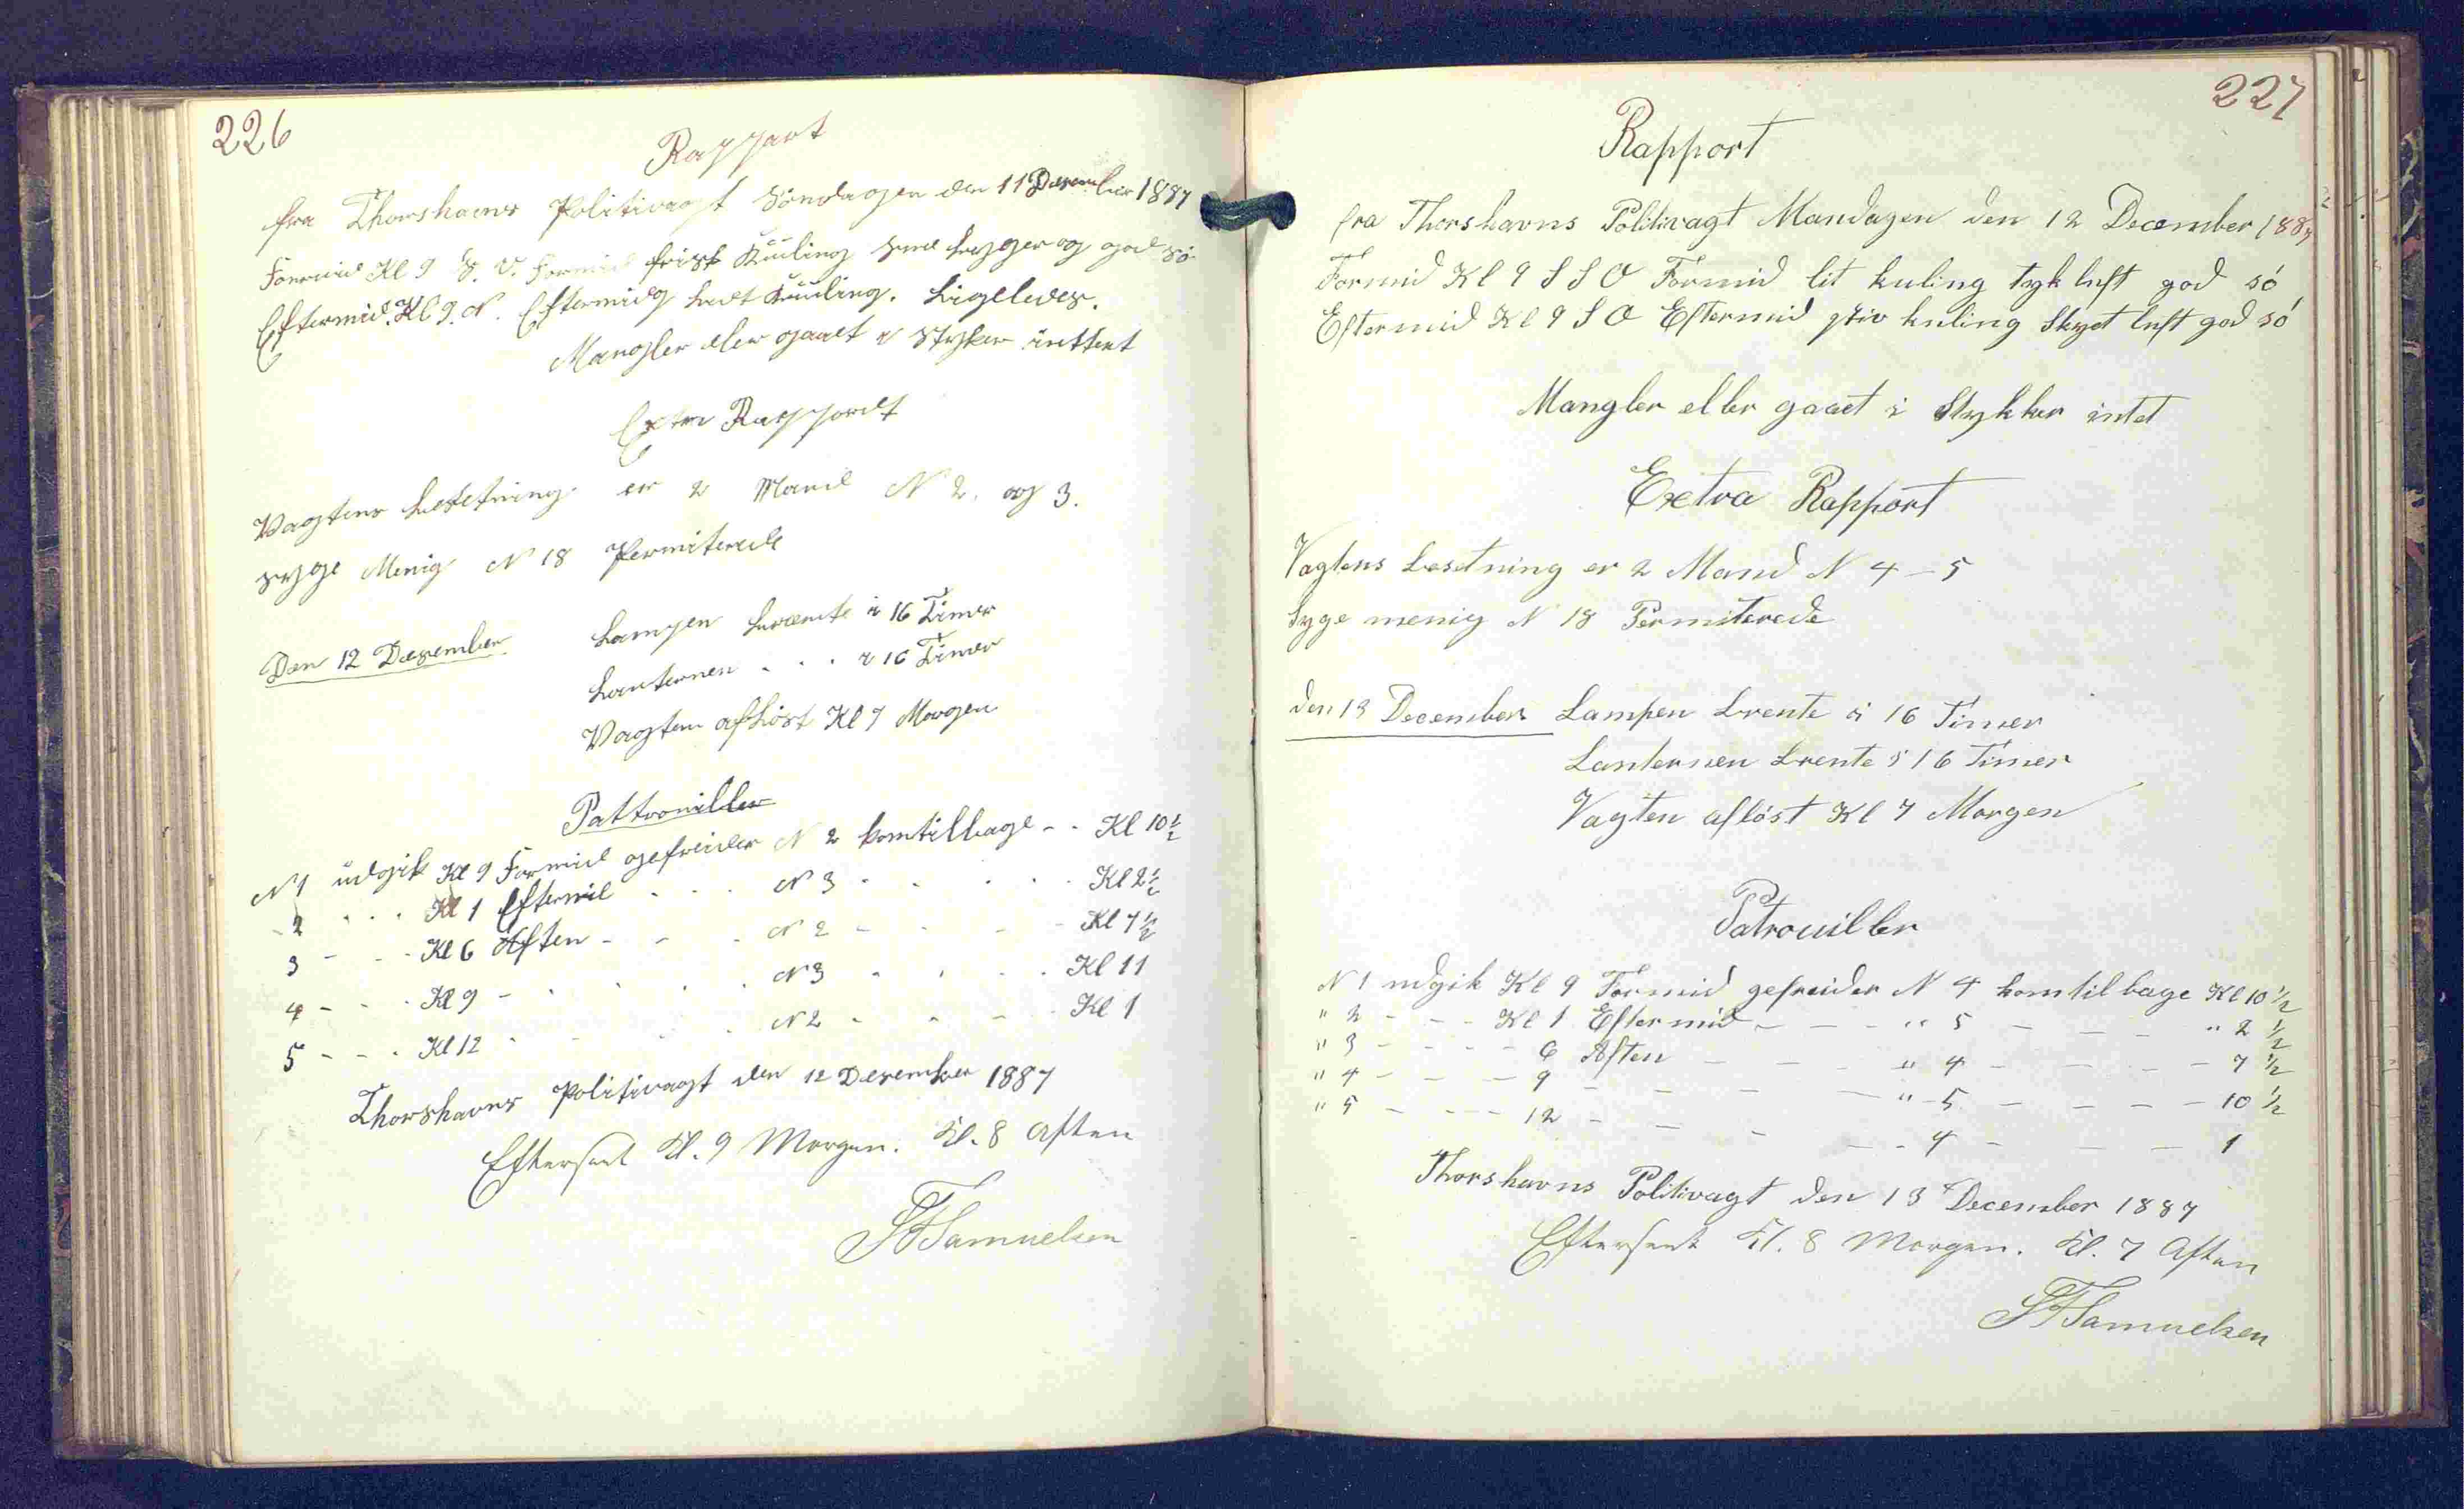 226
Rapport
fra Thorshavns Politivagt Söndagen den 11 Desember 1887
Formid Kl 9 S. V. Formid frisk Kuling sne bygger og god sö
Eftermid. Kl 9. N. Eftermidg lidt Kuuling. Ligeledes.
Mangler eler gaaet i styker inttent
Extra Rappordt
Vagtens besetning er 2 Mand N 2. og 3.
syge Menig N 18 Permiterede
Den 12 Desember Lampen brænte i 16 Timer
Lanternen . . . i 16 Timer
Vagten afløst Kl 7 Morgen
Pattrouiller
N 1 udgik Kl 9 Formid gefreider N 2 komtilbage - . Kl 10 1/2
- 2 . . . Kl 1 Eftermid . . . N 3 . . . . . Kl 2 1/2
3 - - . Kl 6 Aften - - . N 2 - - - - Kl 7 1/2
4 - - . Kl 9 - . . . . N 3 . . . . Kl 11
5 - - . Kl 12 . . . N 2 . - - . Kl 1
Thorshavns Politivagt den 12 Desember 1887
Efterseet Kl. 9 Morgen. Kl. 8 Aften
SFSamuelsen
227
Rapport
fra Thorshavns Politivagt Mandagen den 12 December 1887
Formid Kl 9 S S O Formid lit kuling tyk luft god só
Eftermid Kl 9 S O Eftermid stiv kuling Skyet luft god só
Mangler eller gaaet i Stykker intet
Extra Rapport
Vagtens besetning er 2 Mand N 4 - 5
Syge menig N 18 Permiterede
den 13 December Lampen brente i 16 Timer
Lanternen brente i 16 Timer
Vagten aflöst Kl 7 Morgen
Patrouiller
N 1 udgik Kl 9 Formid gefreider N 4 komtilbage Kl 10 1/2
" 2 - - - Kl 1 Eftermid - - - " 5 - - - " 2 1/2
" 3 - - - - 6 Aften - - - " 4 - - - - 7 1/2
" 4 - - - 9 - - - - " - 5 - - - - 10 1/2
" 5 - - - - 12 - - - - - 4 - - - 1
Thorshavns Politivagt den 13 December 1887
Efterseet Kl. 8 Morgen. Kl. 7 Aften
SFSamuelsen